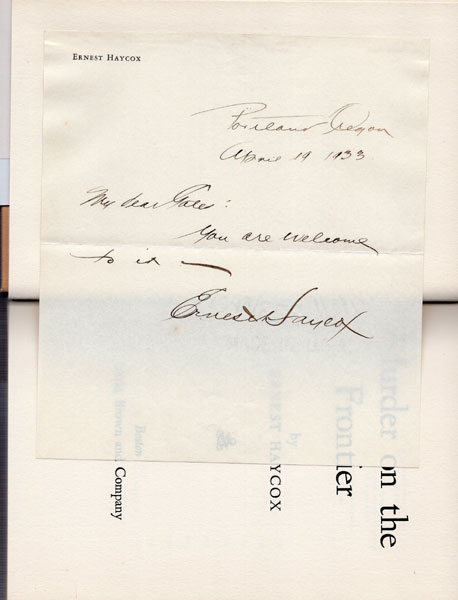 ERNEST HAYCOX
Portland Oregon
April 19 1933
My dear Gates:
You are welcome
to it —
Ernest Haycox
Murder on the
Frontier
by
ERNEST HAYCOX
Boston
Little, Brown and Company